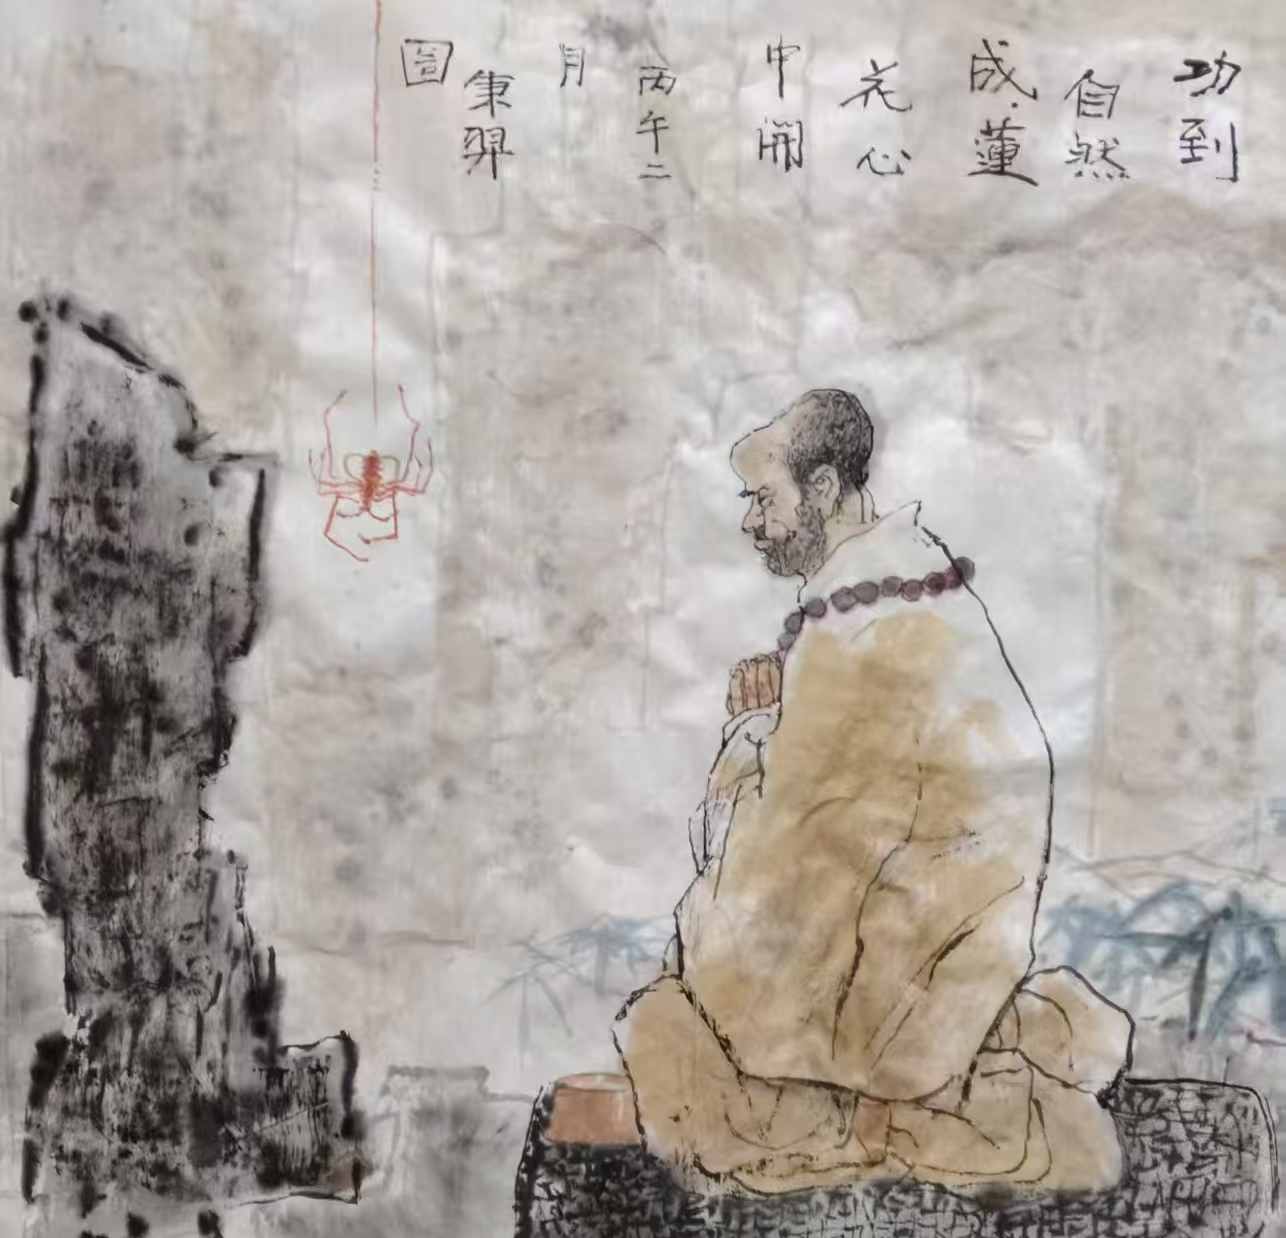 功到
自然
成·蓮
花心
中開
丙午二
月
秉羿
圖